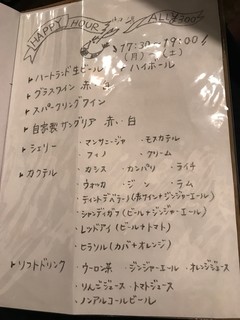 HAPPY HOUR ALL ¥300
17:30~19:00
(月) ー (土)
▸ハートランド生ビール ▸ハイボール
▸グラスワイン 赤・白
▸スパークリングワイン
▸自家製 サングリア 赤い・白
▸シェリー ・マンサニージャ ・モスカテル
・フィノ ・クリーム
▸カクテル ・カシス ・カンパリ ・ライチ
・ウォッカ ・ジン ・ラム
・ティントデベラーノ(赤ワイン+ジンジャーエール)
・シャンディガフ(ビール+ジンジャーエール)
・レッドアイ(ビール+トマト)
・ヒラソル(カバ+オレンジ)
▸ソフトドリンク ・ウーロン茶 ・ジンジャーエール ・オレンジジュース
・りんごジュース ・トマトジュース
・ノンアルコールビール